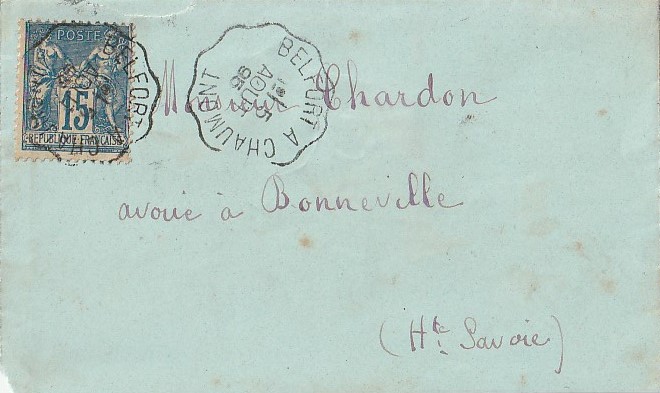 POSTES
15
RÉPUBLIQUE FRANÇAISE
BELFORT
BELFORT A CHAUMONT
5
AOUT
95
Monsieur Chardon
avoué à Bonneville
(Hte Savoie)